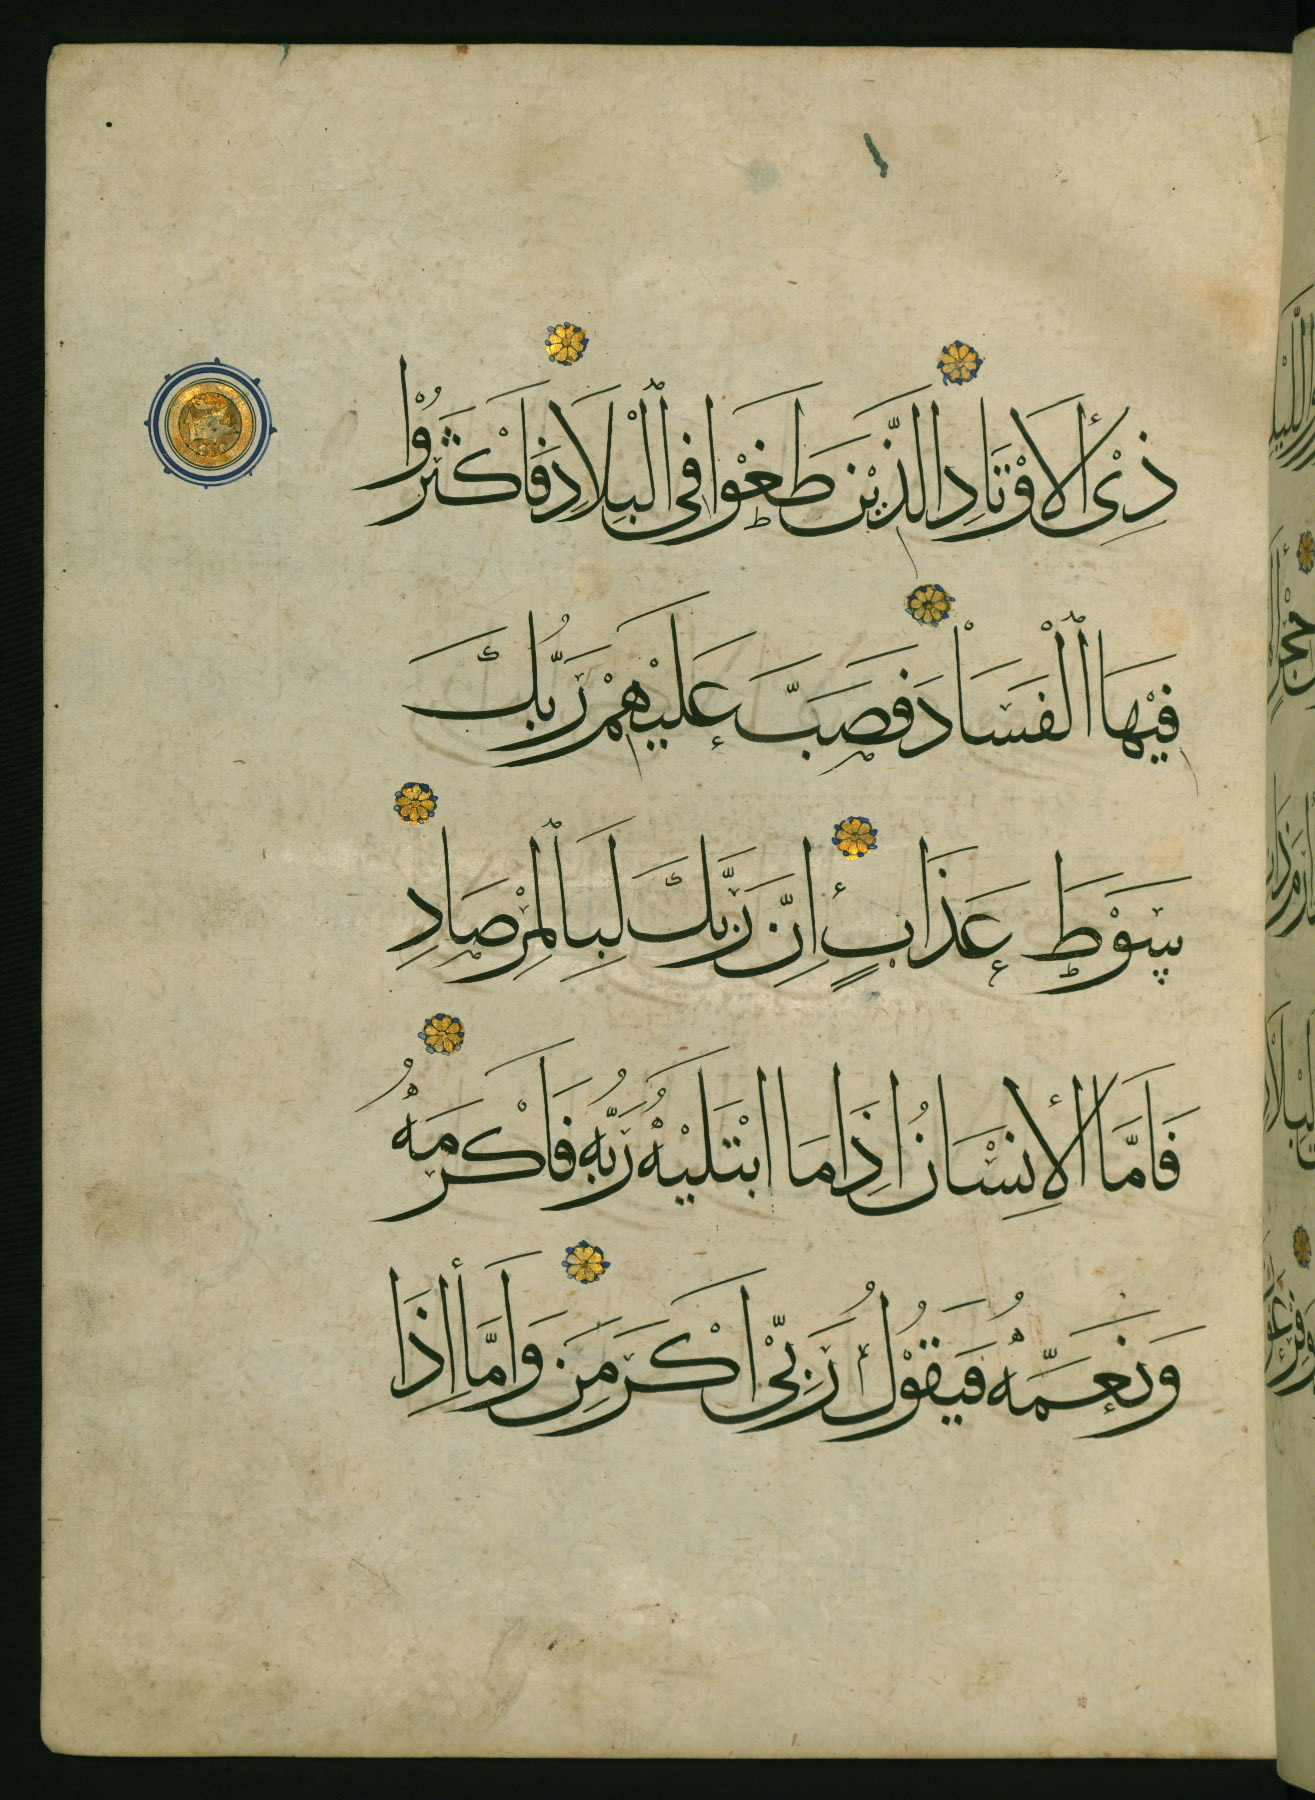 ذِيْ ٱلْأَوْتَادِ الَّذِيْنَ طَغَوْا فِي ٱلْبِلَادِ فَاَكْثَرُوْا
فِيْهَا ٱلْفَسَادَ فَصَبَّ عَلَيْهِمْ رَبُّكَ
سَوْطَ عَذَابٍ اِنَّ رَبَّكَ لَبِٱلْمِرْصَادِ
فَاَمَّا ٱلْأِنْسَانُ اِذَا مَا ابْتَلَيْهُ رَبُّهُ فَاَكْرَمَهُ
وَنَعَّمَهُ فَيَقُوْلُ رَبِّيْ اَكْرَمَنِ وَاَمَّا إِذَا